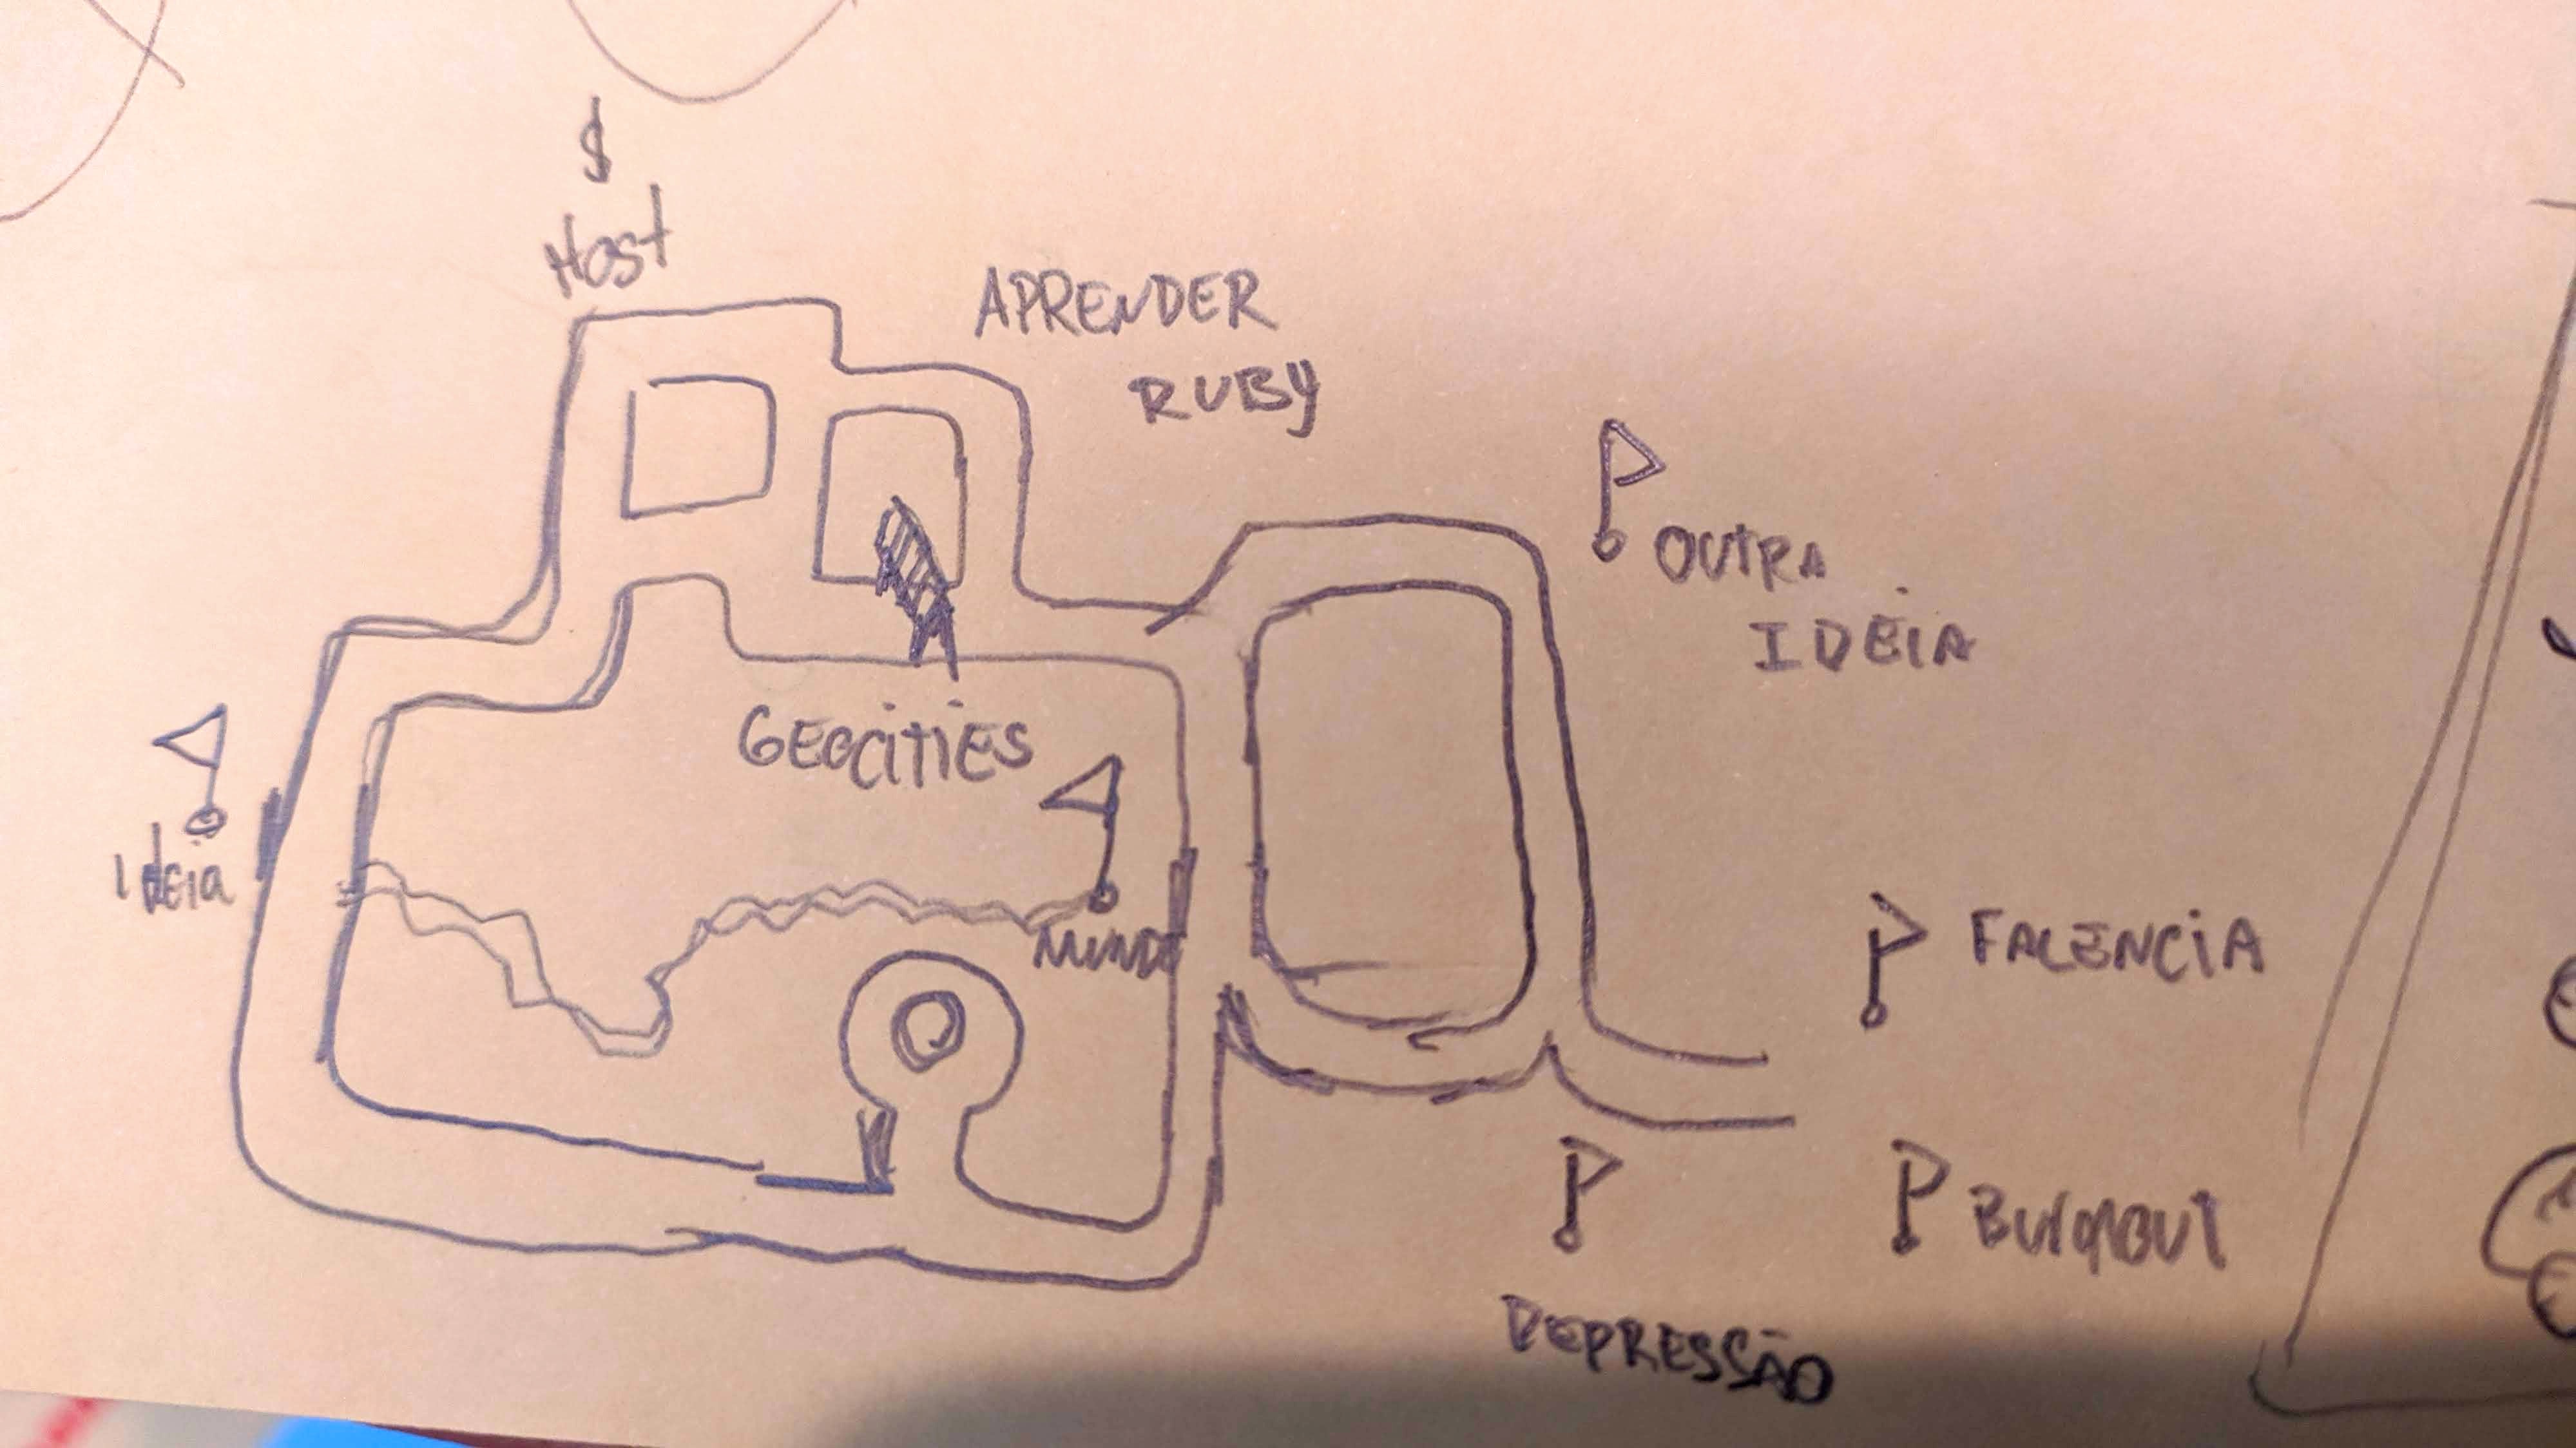 $
Host
APRENDER
RUBY
OUTRA
IDEIA
GEOCITIES
Ideia
MUNDO
FALENCIA
DEPRESSÃO